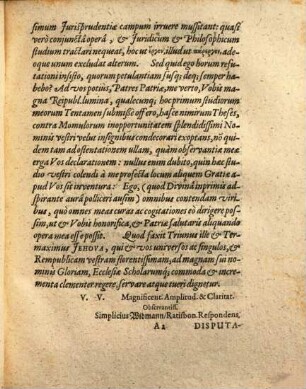 simum Jurisprudentiæ campum irruere mussitant: quasi
verò comunctâ operâ, & Juridicum & Philosophicum
studium tractari nequeat, hoc ut ἔργον, illud ut πάρεργον, ade-
oque unum excludat alterum. Sed quid ego horum resu-
tationi insisto, quorum petulantiam susq́; deq́; semper ha-
bebo? Ad vos potius, Patres Patriæ, me verto, Vobis ma-
gna Reipubl. lumina, qualecunq; hoc primum studiorum
meorum Tentamen submissè offero, hasce nimirum Theses,
contra Momulorum inopportunitatem splendidissimi No-
minis vestri velut insignibus condecorari exoptans, nō qui-
dem tam ad ostentationem ullam, quàm observantiæ mea
erga Vos declarationem: nullus enim dubito, quin hæc stu-
dio vestri colendi à me profecta locum aliquem Gratiæ a-
pud Vos sit inventura: Ego, (quod Divinâ inprimis ad-
spirante aurâ polliceri ausim) omnibus contendam viri-
bus, quò omnes meas curas ac cogitationes eò dirigere pos-
sim, ut & Vobis honorifica, & Patriæ salutaris aliquando
opera mea esse possit. Quod faxit Trinus ille & Ter-
maximus JEHOVA, qui & vos universos ac singulos, &
Rempublicam vestram florentissimam, ad magnam sui no-
minis Gloriam, Ecclesiæ Scholarumq; commoda & incre-
menta clementer regere, servare atque tueri dignetur.
V. V. Magnificent. Amplitud. & Claritat.
Observantiss.
Simplicius Widmann/Ratisbon. Respondens.
A 2 DISPUTA-